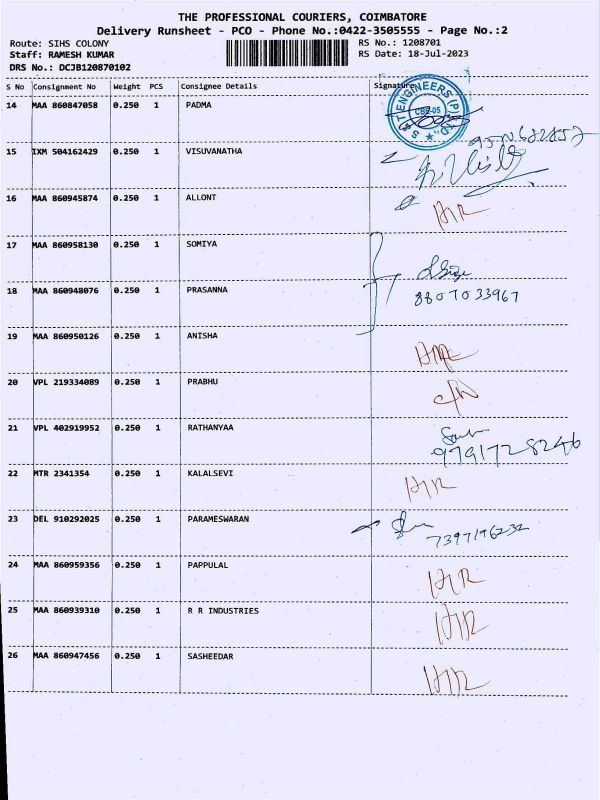 THE PROFESSIONAL COURIERS, COIMBATORE
Delivery Runsheet - PCO - Phone No.:0422-3505555 - Page No.:2
Route: SIHS COLONY RS No.: 1208701
Staff: RAMESH KUMAR RS Date: 18-Jul-2023
DRS No.: DCJB120870102
S No Consignment No Weight PCS Consignee Details Signature
14 MAA 860847058 0.250 1 PADMA
ENGINEERS (P)
CBE-05
15 IXM 504162429 0.250 1 VISUVANATHA
16 MAA 860945874 0.250 1 ALLONT
17 MAA 860958130 0.250 1 SOMIYA
18 MAA 860948076 0.250 1 PRASANNA
8807033967
19 MAA 860950126 0.250 1 ANISHA
20 VPL 219334089 0.250 1 PRABHU
21 VPL 402919952 0.250 1 RATHANYAA
9791728246
22 MTR 2341354 0.250 1 KALALSEVI
23 DEL 910292025 0.250 1 PARAMESWARAN
7397196232
24 MAA 860959356 0.250 1 PAPPULAL
25 MAA 860939310 0.250 1 R R INDUSTRIES
26 MAA 860947456 0.250 1 SASHEEDAR